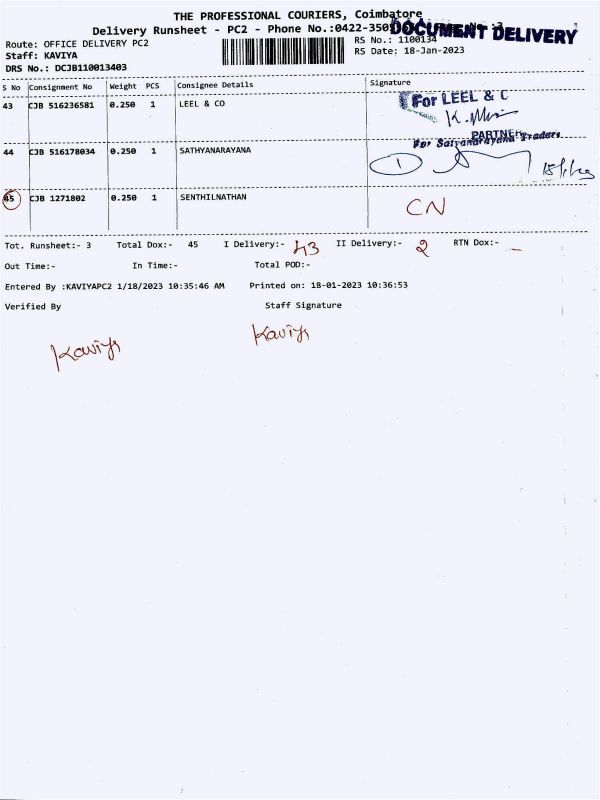 THE PROFESSIONAL COURIERS, Coimbatore
Delivery Runsheet - PC2 - Phone No.:0422-350
DOCUMENT DELIVERY
Route: OFFICE DELIVERY PC2
Staff: KAVIYA
DRS No.: DCJB110013403
RS No.: 1100134
RS Date: 18-Jan-2023
S No Consignment No Weight PCS Consignee Details Signature
43 CJB 516236581 0.250 1 LEEL & CO
For LEEL & C
PARTNER
44 CJB 516178034 0.250 1 SATHYANARAYANA
For Satyanarayana Traders
1
45 CJB 1271802 0.250 1 SENTHILNATHAN CN
Tot. Runsheet:- 3 Total Dox:- 45 I Delivery:- 43 II Delivery:- 2 RTN Dox:- —
Out Time:- In Time:- Total POD:-
Entered By :KAVIYAPC2 1/18/2023 10:35:46 AM Printed on: 18-01-2023 10:36:53
Verified By Staff Signature
Kaviya Kaviya